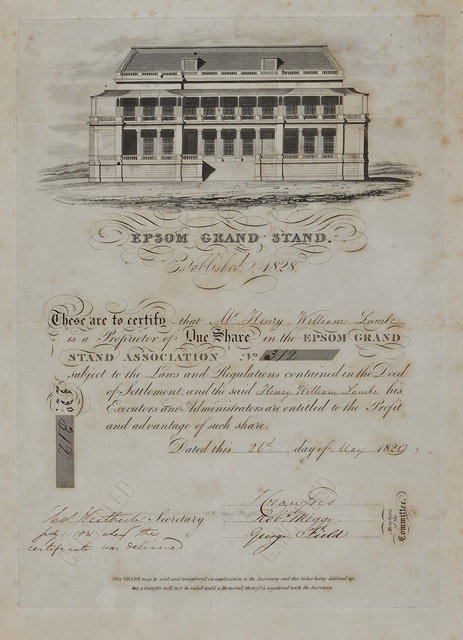 EPSOM GRAND STAND.
Established 1828.
These are to certify that Mr. Henry William Lambe
is a Proprietor of One Share in the EPSOM GRAND
STAND ASSOCIATION No. 312
subject to the Laws and Regulations contained in the Deed
of Settlement, and the said Henry William Lambe, his
Executors and Administrators are entitled to the Profit
and advantage of such share.
No. 312
Dated this 26th day of May 1829
Secretary
Robt. Moggy
George Field
Members of the Committee.
when the
certificate was delivered
CANCELLED
This SHARE may be sold and transferred on application to the Secretary and this ticket being delivered up,
but a transfer will not be valid until a Memorial thereof is registered with the Secretary.